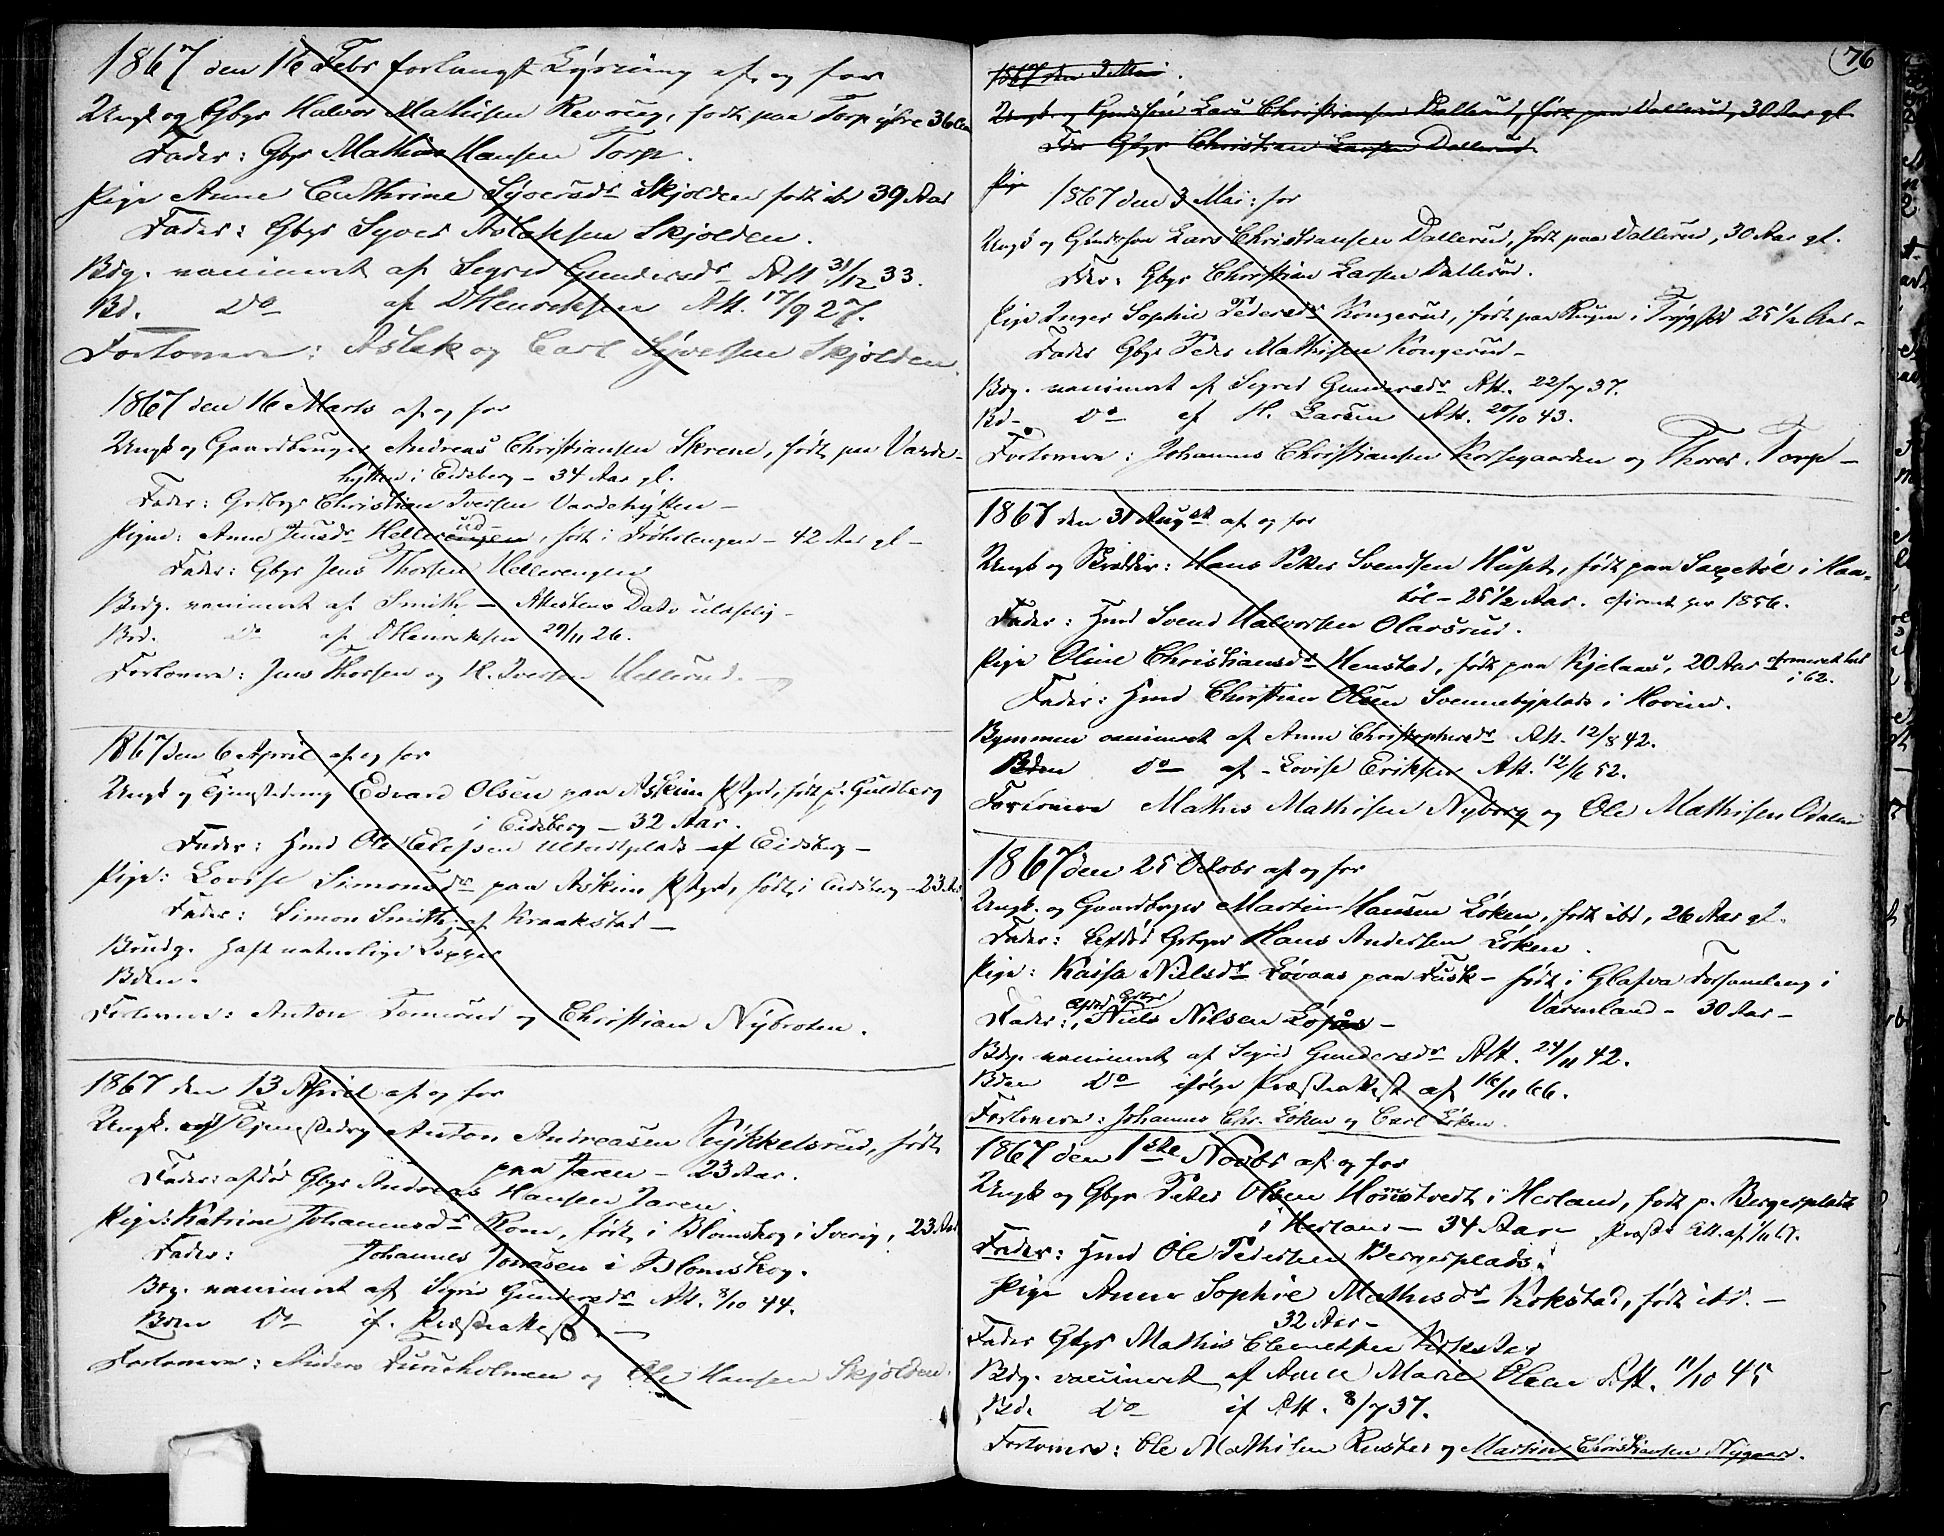 1867 den 16 Febr forlangt Lysning af og for
Ungk og Gbgr Halvor Mathisen Revoug, født paa Torp øfre 36 Aar
Fader: Gbgr Mathias Hansen Torp.
Pige Anne Cathrine Syversdr Skjolden født ibd 39 Aar
Fader: Gbgr Syver Aslaksen Skjolden.
Bdg. vaccineret af Sigrid Gundersdr Att 31/12 33.
Bd. Do af D Henriksen Att. 17/9 27.
Forlovere: Aslak og Carl Syversen Skjolden.
1867 den 16 Marts af og for
Ungk og Gaardbruger Andreas Christiansen Skrene, født paa Varde-
hytten i Eidsberg - 34 Aar gl.
Fader: Grdbgr Christian Iversen Vardehytten -
Pigen: Anne Jensdr Hellerengen ud-, født i Frøholengen - 42 Aar gl -
Fader: Gbgr Jens Thorsen Hellerengen
Brdg. vaccineret af Smith - Attestens Dato ulæselig -
Brd. Do af D Henriksen 29/11 26.
Forlovere: Jens Thorsen og H. Iversen Hellerud. -
1867 den 6 April af og for
Ungk og Tjenestedreng Edvard Olsen paa Askim Pstgrd, født p. Guldberg
i Eidsberg - 32 Aar.
Fader: Hmd Ole plads af Eidsberg -
Pige: Lovise Simonsdr paa Askim Pstgrd, født i Eidsberg - 23 Aar
Fader: Simon Smith af Kraakstad -
Brudg. haft naturlige Kopper
Bden.
Forlovere: Anton Tomrud og Christian Nybroten.
1867 den 13 April af og for
Ungk. og Tjenestedrg Anton Andreasen Rykkelsrud, født
paa Jaren - 23 Aar.
Fader: afdød Gbgr Andreas Hansen Jaren.
Pige: Katrine Johannesdr Rom, født i Blomskog i Sverig, 23 Aar
Fader: Johannes Jonasen i Blomskog.
Bdg. vaccineret af Sigrid Gundersdr Att. 8/10 44.
Bden Do if. Præsteattest. -
Forlovere: Anders Furuholmen og Ole Hansen Skjolden.
76
1867 den 3 Mai.
Ungk og Gaardsøn Lars Christiansen Dallerud, født paa Dallerud, 30 Aar gl.
Fder Gbgr Christian Larsen Dallerud.
Pige
1867 den 3 Mai: for
Ungk og Grdsøn Lars Christiansen Dallerud, født paa Dallerud, 30 Aar gl.
Fder: Gbgr Christian Larsen Dallerud.
Pige Inger Sophie Pedersdr Kongerud, født paa Rugen i Trygstad 25 1/2 Aar -
Fader Gbgr Peder Mathisen Kongerud -
Bdg. vaccineret af Sigrid Gundersdr Att. 22/7 37.
Bd- Do af H. Larsen Att. 20/10 43.
Forlovere: Johannes Christiansen Korsegaarden og Thorer Torp -
1867 den 31 August af og for
Ungk og Skrædder: Hans Peter Svendsen Huset, født paa Saxetøl i Haa-
bøl - 25 1/2 Aar. cfirmt ger 1856.
Fader: Hmd Svend Halvorsen Olavsrud.
Pige Oline Christiansdr Henstad, født paa Kjelaas, 20 Aar cfirmeret her
i 62.
Fader: Hmd Christian Olsen Svennebyplads i Hovind.
Bgommen vaccineret af Anne Christophersdr Att. 12/8 42.
Bden Do af Lovise Eriksen Att. 12/6 52.
Forlovere Mathis Mathisen Nyborg og Ole Mathisen Odalen
1867 den 25 Octobr af og for
Ungk. og Gaardbrger Martin Hansen Løken, født ibd, 26 Aar gl.
Fader: Afdød Grbgr Hans Andersen Løken.
Pige: Kaisa Nielsdr Løvaas paa Fusk - født i Glafva Forsamling i
Varmland - 30 Aar -
Fader: Afdød Grbgr Niels Nilsen Lofås -
Bdg. vaccineret af Sigrid Gundersdr Att. 24/11 42.
Bden Do ifølge Præsteattest af 16/11 66.
Forlovere: Johannes Chr. Løken og Carl Løken.
1867 den 1ste Novbr af og for
Ungk og Gbgr Peter Olsen Homstvedt i Herland, født p. Bergerplads
i Herland - 34 Aar Præste Att. af 1/11 67.
Fader: Hmd Ole Pedersen Bergerplads.
Pige Anne Sophie Mathisdr Kokstad, født ibd. -
32 Aar -
Fader Gbgr Mathis Clemetsen Kokstad
Bdg. vaccineret af Anne Marie Olsen Att. 11/10 45
Bd. Do if Att. 8/7 37.
Forlovere: Ole Mathisen Rustad og Martin Christiansen Nygaard.